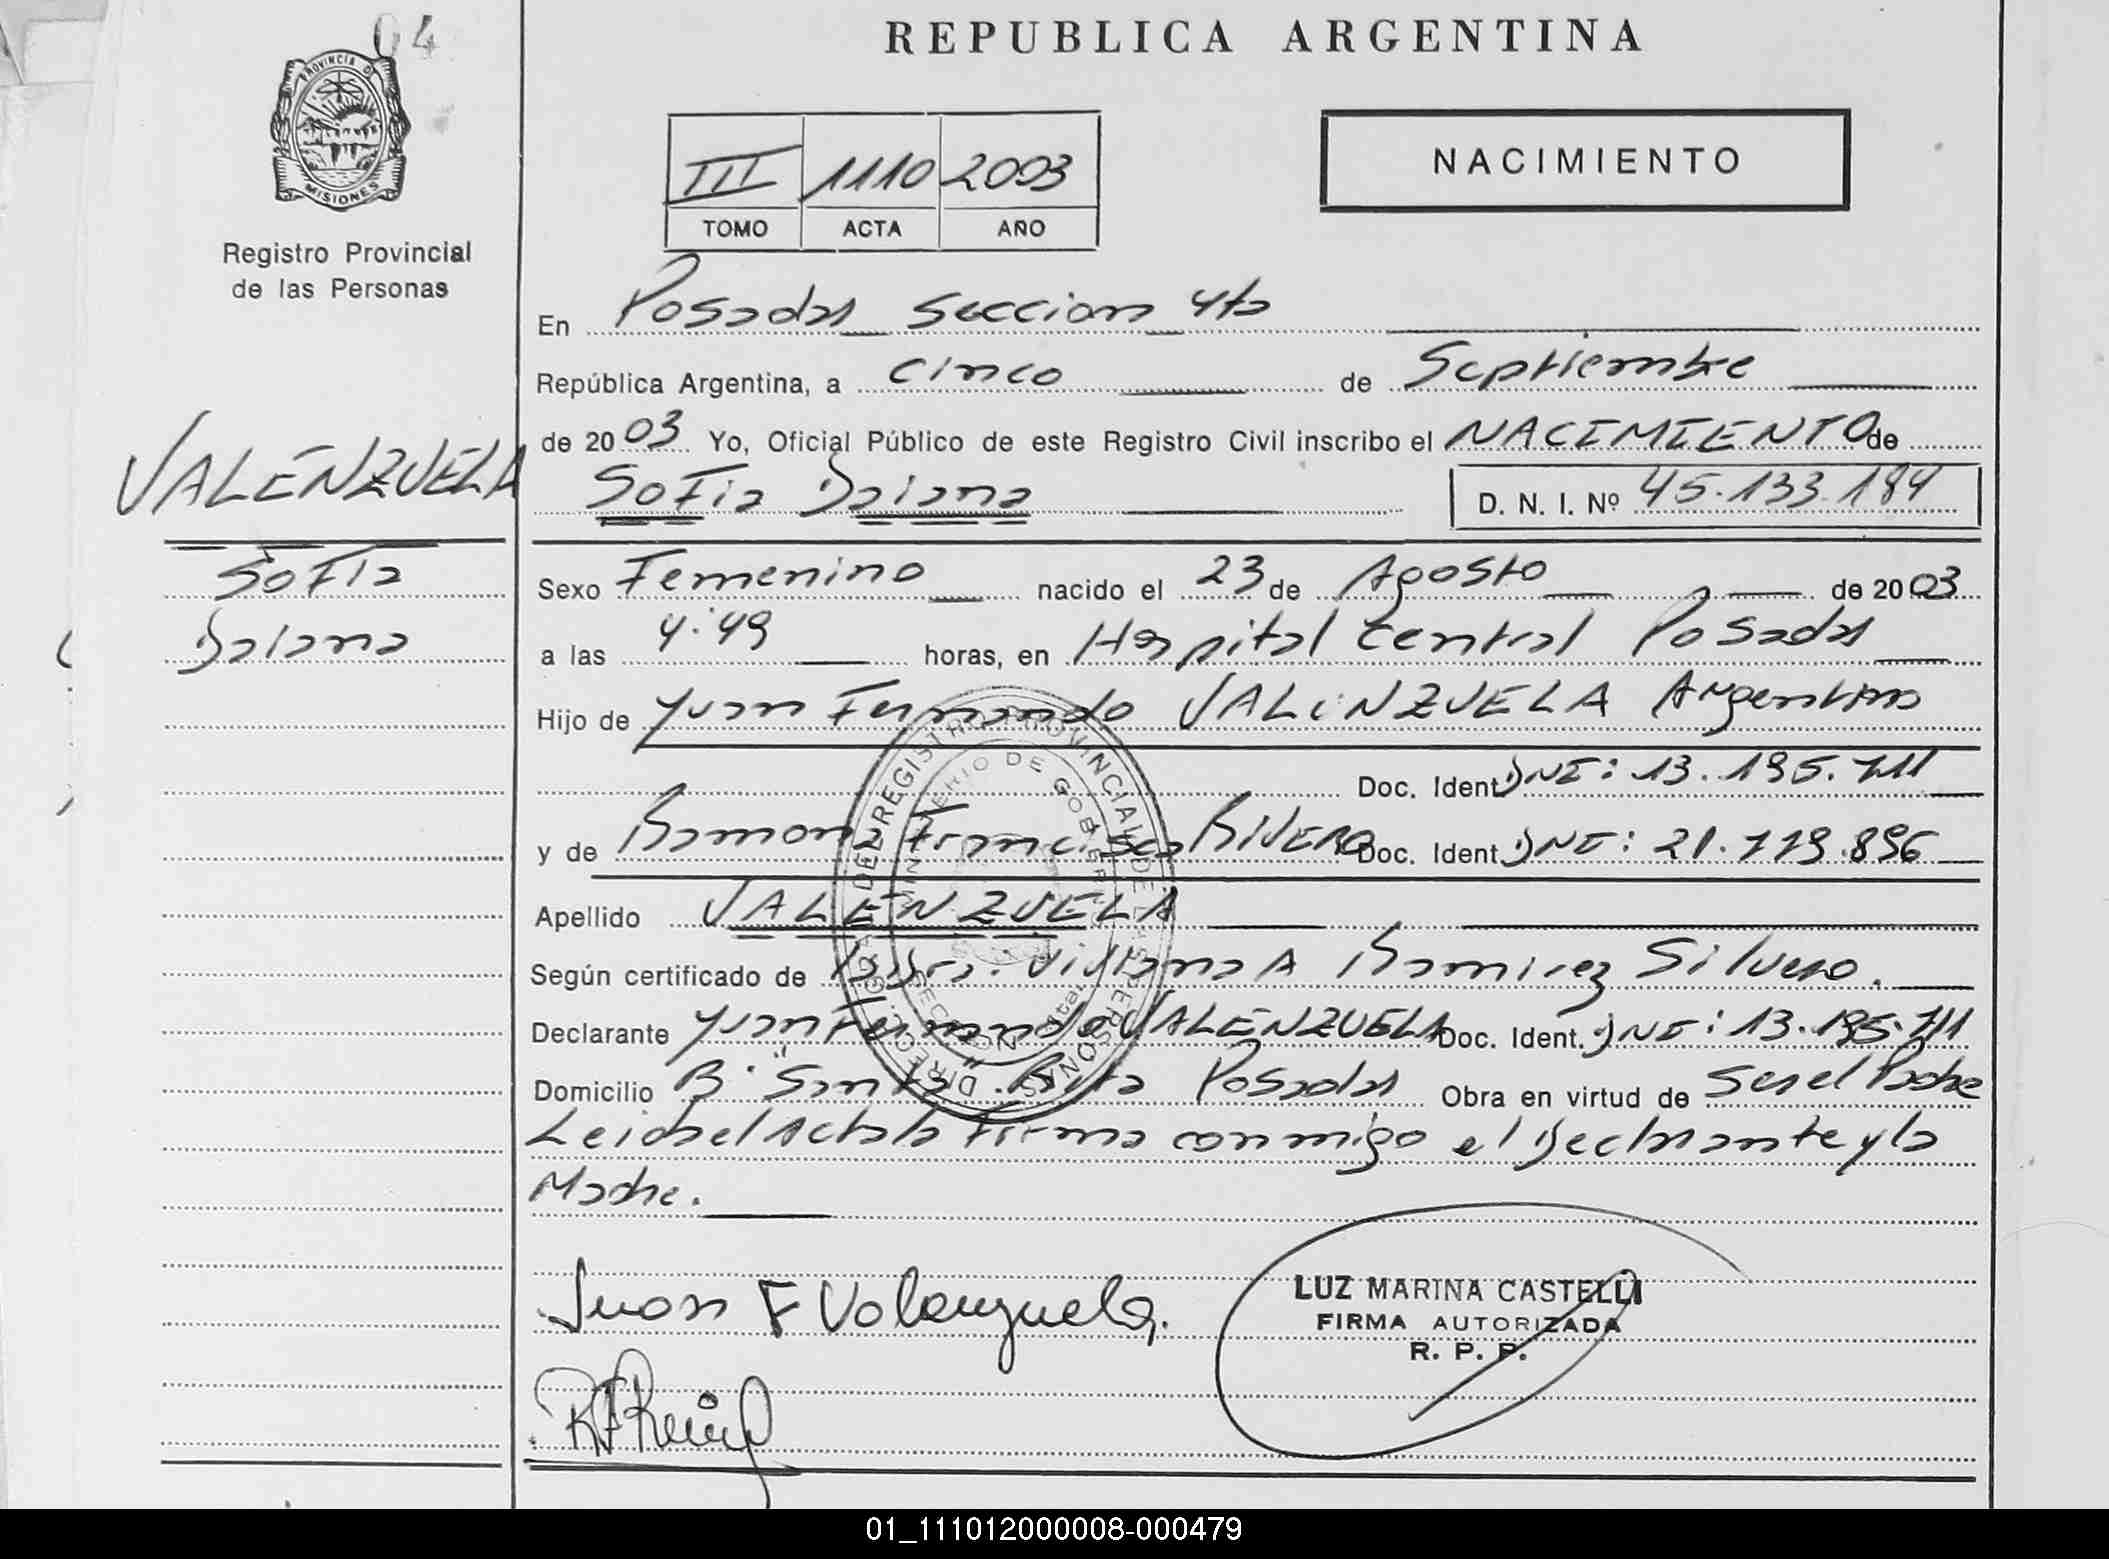 04
PROVINCIA D
MISIONES
Registro Provincial
de las Personas
VALENZUELA
SoFia
Daiana
REPUBLICA ARGENTINA
III 1110 2003
TOMO ACTA AÑO
NACIMIENTO
En Posadas Seccion 4ta
República Argentina, a cinco de Septiembre
de 2003 Yo, Oficial Público de este Registro Civil inscribo el NACIMIENTO de
SoFia Daiana D. N. I. Nº 45.133.184
Sexo Femenino nacido el 23 de Agosto de 2003
a las 4:49 horas, en Hospital Central Posadas
Hijo de Juan Fernando VALENZUELA Argentino
Doc. Ident DNI: 13.195.711
y de Ramona Francisca RIVERO Doc. Ident DNI: 21.779.896
Apellido VALENZUELA
Según certificado de Viviana A Ramirez Silvero.
Declarante Juan Fernando VALENZUELA Doc. Ident. DNI: 13.195.711
Domicilio Bº Santa Rita Posadas Obra en virtud de ser el Padre
Leida el Acta la Firma conmigo el Declarante y la
Madre.
Juan F Valenzuela.
LUZ MARINA CASTELLI
FIRMA AUTORIZADA
R. P. P.
DIREC. GRAL DEL REGISTRO PROVINCIAL DE LAS PERSONAS
MINISTERIO DE GOBIERNO
SECCION
01_111012000008-000479